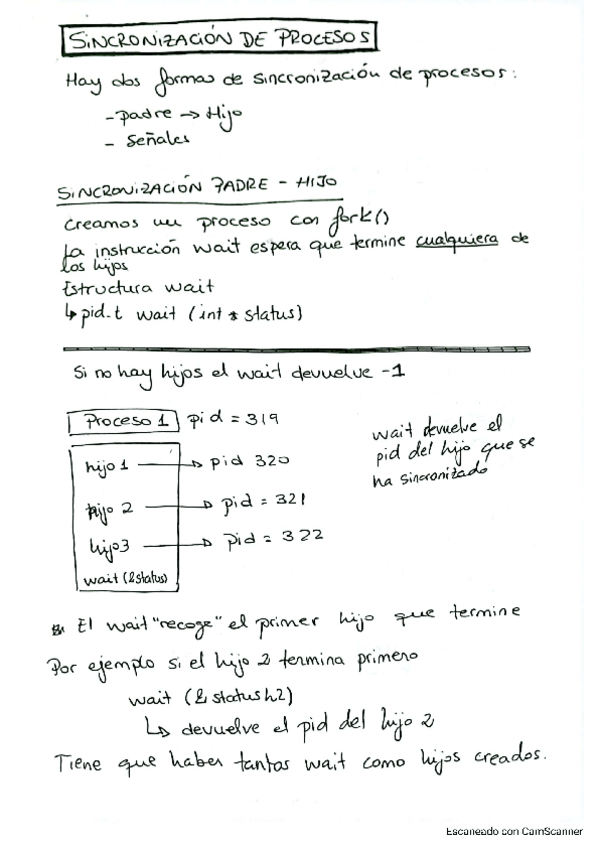 SINCRONIZACIÓN DE PROCESOS
Hay dos formas de sincronización de procesos:
- padre → Hijo
- Señales
SINCRONIZACIÓN PADRE - HIJO
Creamos un proceso con fork()
La instrucción wait espera que termine cualquiera de
los hijos
Estructura wait
↳ pid_t wait (int * status)
Si no hay hijos el wait devuelve -1
Proceso 1 pid = 319
wait devuelve el
pid del hijo que se
ha sincronizado
hijo 1 → pid 320
hijo 2 → pid = 321
hijo 3 → pid = 322
wait (&status)
El wait "recoge" el primer hijo que termine
Por ejemplo si el hijo 2 termina primero
wait (&statush2)
↳ devuelve el pid del hijo 2
Tiene que haber tantas wait como hijos creados.
Escaneado con CamScanner